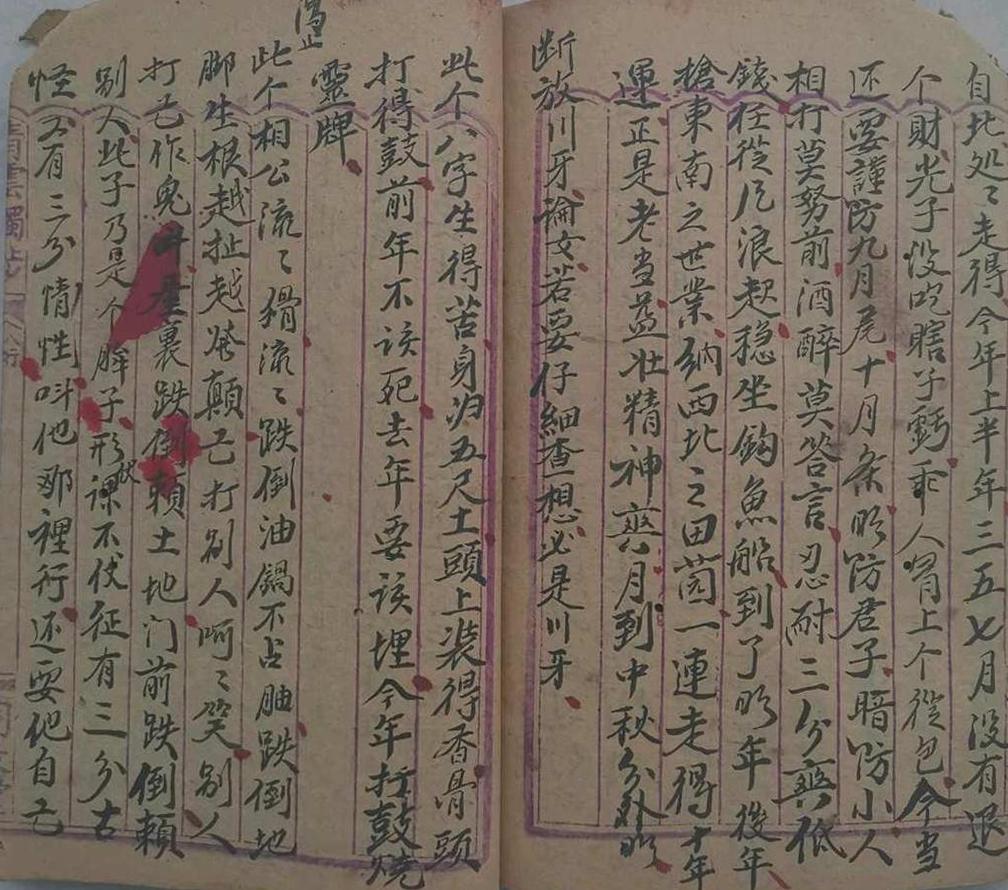 自此处々走得今年上半年三五七月没有退
个財光子没吃瞎子虧乖人冐上个從包今当
还要謹防九月尾十月条明防君子暗防小人
相打莫努前酒醉莫答言忍耐三分興低
錢任從凡浪起稳坐鈎魚船到了明年後年
搶東南之世業納西北之田茵一連走得十年
運正是老当益壮精神興月到中秋分外明
断放川牙倫女若要仔細查想必是川牙
此个八字生得苦身归五尺土頭上装得香骨頭
打得鼓前年不该死去年要该埋今年打鼓燒
靈牌
此个相公流々猾流々跌倒油鍋不占油跌倒地
脚生根越扯越发顛己打别人呵々笑别人
打己作鬼裏跌倒賴土地门前跌倒賴
别人此子乃是个牌子形状課不伏征有三分古
怪又有三分情性呌他那裡行还要他自己